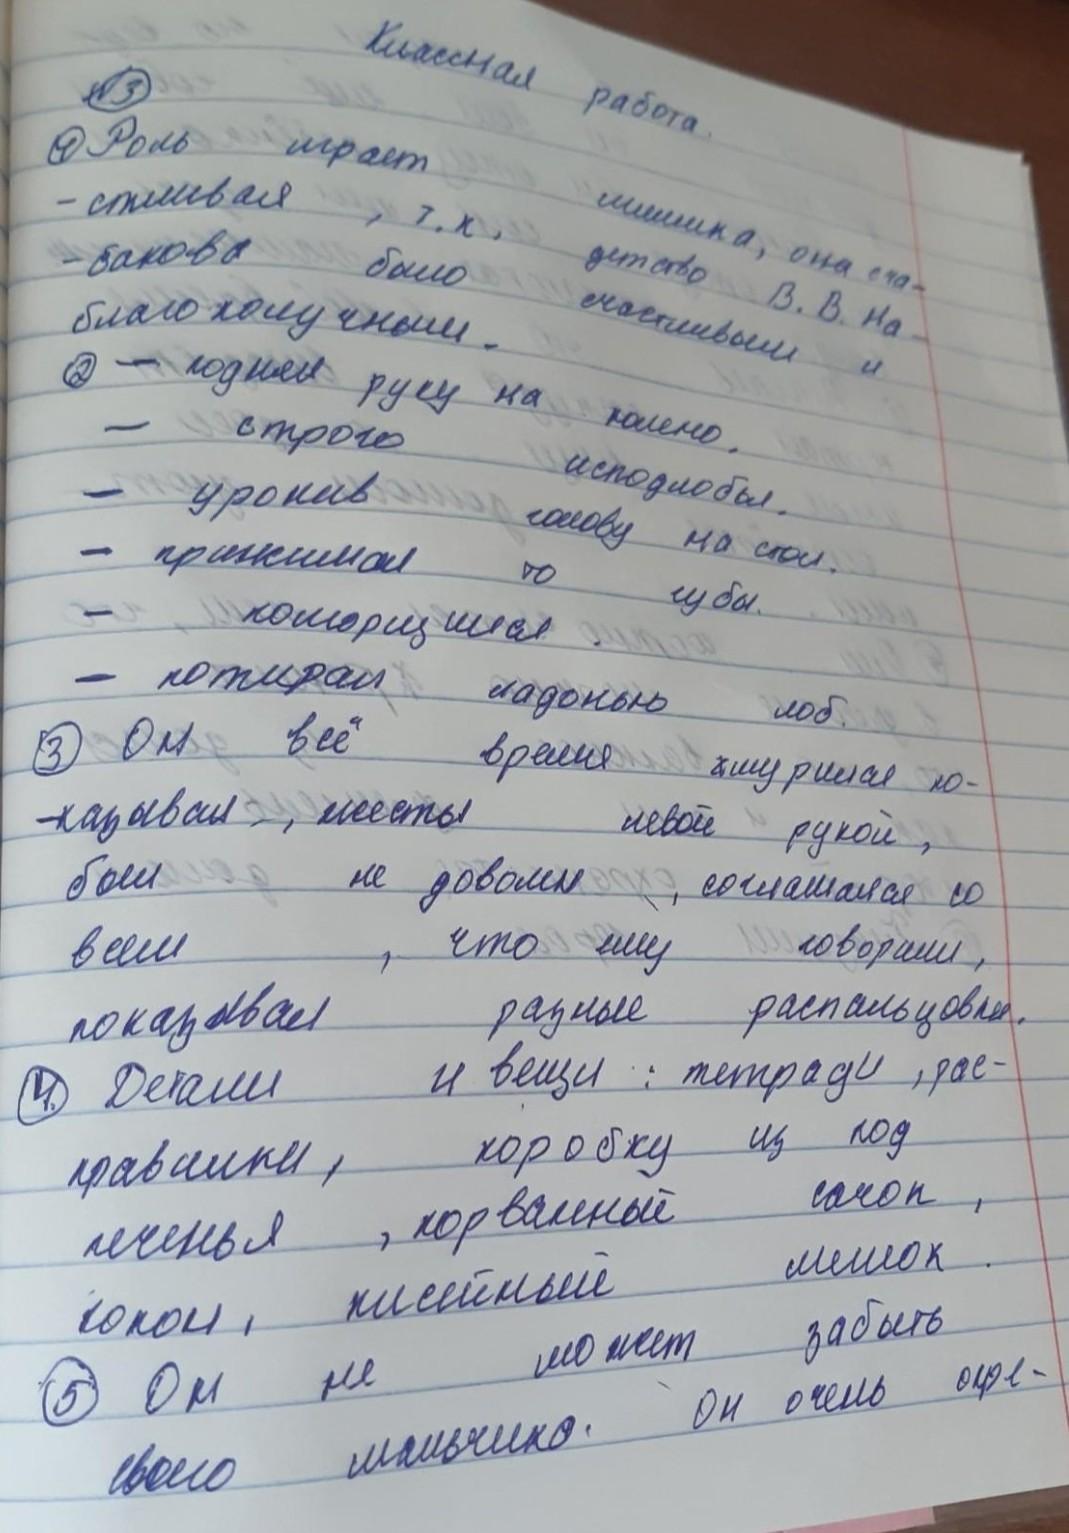 Классная работа.
№3
① Роль играет мишка, она сча-
-стливая, т.к. детство В.В. На-
-бокова было счастливым и
благополучным.
② – поднял руку на колено.
– строго исподлобья.
– уронив голову на стол.
– прижимая то губы.
– поморщился.
– потирал ладонью лоб.
③ Он всё время хмурился по-
-казывал, жесты левой рукой,
был не доволен, соглашался со
всем, что ему говорили,
показывал разные распальцовки.
④ Детали и вещи: тетради, рас-
правилки, коробку из под
печенья, порванный сачок,
кокон, кисейный мешок.
⑤ Он не может забыть
своего мальчика. Он очень